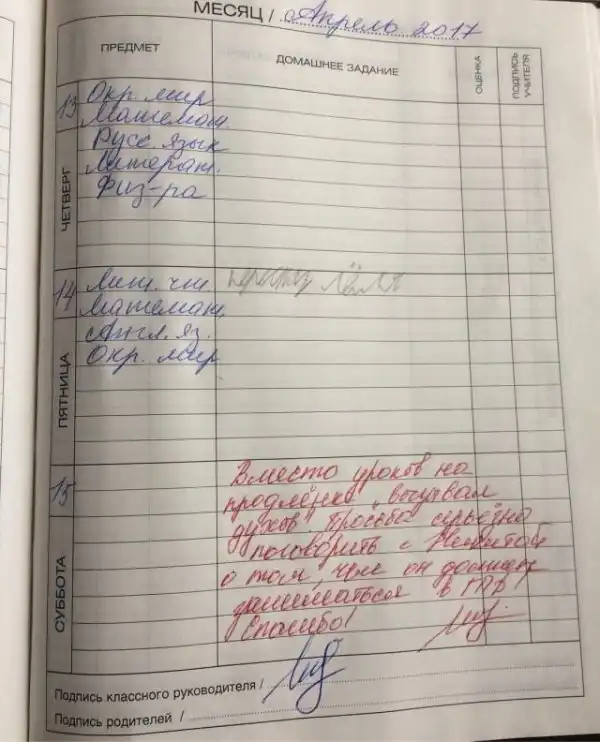 МЕСЯЦ / Апрель 2017
ПРЕДМЕТ ДОМАШНЕЕ ЗАДАНИЕ ОЦЕНКА ПОДПИСЬ УЧИТЕЛЯ
13 ЧЕТВЕРГ
Окр. мир
Математ.
Русс. язык
Литерат.
Физ-ра
14 ПЯТНИЦА
Лит. чт. пересказ
Математ.
Англ. яз.
Окр. мир
15 СУББОТА
Вместо уроков на
продлёнке, вызывал
духов. Просьба серьёзно
поговорить с Никитой
о том, чем он должен
заниматься в ГПД
Спасибо!
Подпись классного руководителя /
Подпись родителей /